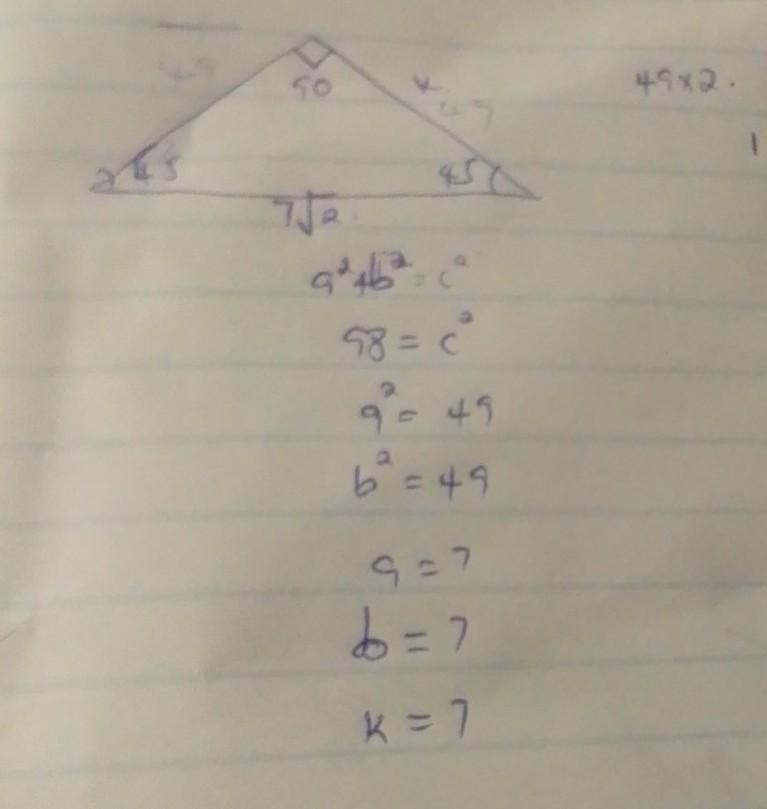 49
90
k
49
49×2.
1
45
45
7√2.
a²+b² = c²
98 = c²
a² = 49
b² = 49
a = 7
b = 7
k = 7